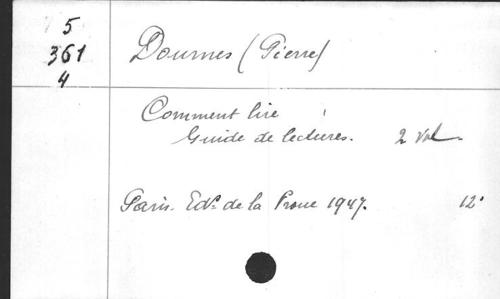 5
361
4
Dournes (Pierre)
Comment lire
Guide de lectures. 2 vol.
Paris. Edns de la Proue 1947. 12°